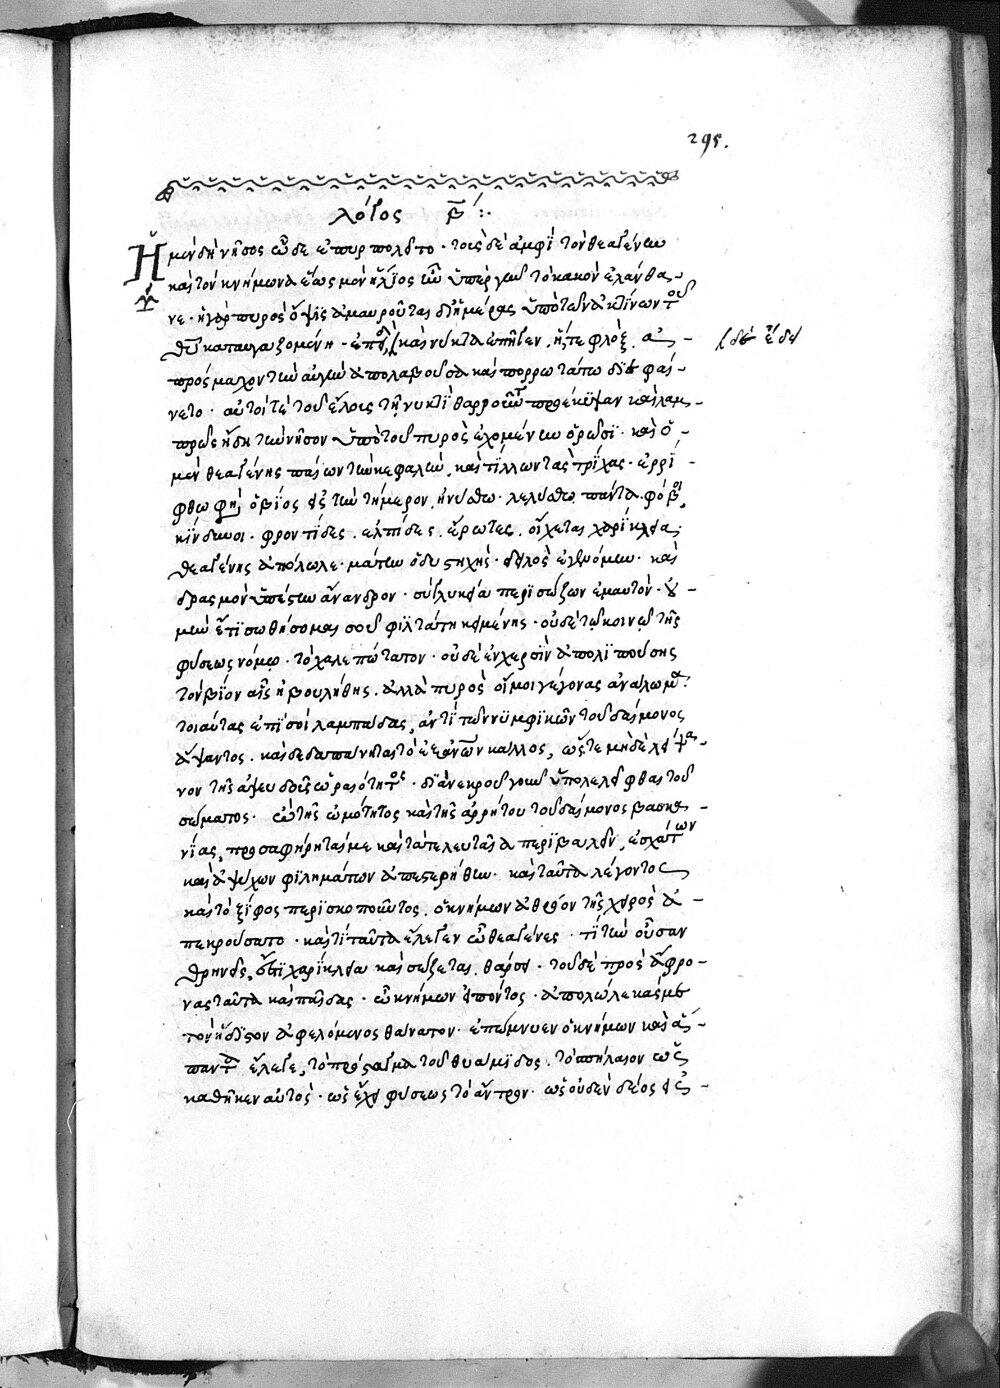 295.
λόγος β̅ :·
Ἡ μὲν δὴ νῆσος ὧδε ἐπυρπολεῖτο · τοὺς δὲ ἀμφὶ τὸν θεαγένην
καὶ τὸν κνήμωνα ἕως μὲν ἥλιος ἦν ὑπὲρ γῆν τὸ κακὸν ἐλάνθα-
νε · ἡ γὰρ πυρὸς ὄψις ἀμαυροῦται δι' ἡμέρας ὑπὸ τῶν ἀκτίνων τοῦ
θεοῦ καταυγαζομένη · ἐπεὶ καὶ νύκτα ἐπῆγεν, ἥ τε φλὸξ ἀ- (δὲ ἔδυ
πρόσμαχον τὴν αὐγὴν ἀπολαβοῦσα καὶ πορρωτάτω διεφαί-
νετο · αὐτοί τε τοῦ ἕλους τῇ νυκτὶ θαρροῦντες προέκυψαν καὶ λαμ-
πρῶς ἤδη τὴν νῆσον ὑπὸ τοῦ πυρὸς ἐχομένην ὁρῶσι · καὶ ὁ
μὲν θεαγένης παίων τὴν κεφαλὴν, καὶ τίλλων τὰς τρίχας · ἐρρί-
φθω φησὶ, ὁ βίος εἰς τὴν τήμερον, ἠνύσθω · λελύσθω πάντα · φόβοι,
κίνδυνοι · φροντίδες . ἐλπίδες . ἔρωτες . οἴχεται χαρίκλεια ·
θεαγένης ἀπόλωλε · μάτην ὁ δυστυχὴς · δειλὸς ἐγενόμην · καὶ
δρασμὸν ὑπέστην ἄνανδρον · σοὶ γλυκεῖα περισώζων ἐμαυτὸν · οὐ
μὴν ἔτι σωθήσομαι σοῦ φιλτάτη κειμένης · οὐδὲ τῷ κοινῷ τῆς
φύσεως νόμῳ · τὸ χαλεπώτατον · οὐδὲ ἐν χερσὶν ἀπολιπούσης
τὸν βίον αἷς ἠβουλήθης . ἀλλὰ πυρὸς οἴμοι γέγονας ἀνάλωμα ·
τοιαύτας ἐπὶ σοὶ λαμπάδας, ἀντὶ τῶν νυμφικῶν τοῦ δαίμονος
ἅψαντος · καὶ δεδαπάνηται τὸ ἐξ ἀνθρώπων κάλλος, ὥστε μηδὲ λείψα-
νον τῆς ἀψευδοῦς ὡραιότητος · διὰ νεκροῦ γοῦν ὑπολελεῖφθαι τοῦ
σώματος · ὢ τῆς ὠμότητος καὶ τῆς ἀρρήτου τοῦ δαίμονος βασκα-
νίας, προσαφῄρηταί με καὶ τὰ τελευταῖα περιβαλεῖν, ἐσχάτων
καὶ ἀψύχων φιλημάτων ἀπεστερήθην · καὶ ταῦτα λέγοντος
καὶ τὸ ξίφος περισκοποῦντος, ὁ κνήμων ἀθρόον τῆς χειρὸς ἀ-
πεκρούσατο · καὶ τί ταῦτα ἔλεγεν ὦ θεάγενες · τί τὴν οὖσαν
θρηνεῖς, ἔστι χαρίκλεια καὶ σώζεται, θάρσει · τοῦ δὲ πρὸς ἄφρο-
νας ταῦτα καὶ παῖδας · ὦ κνήμων εἰπόντος · ἀπολώλεκάς με
τὸν ἥδιστον ἀφελόμενος θάνατον · ἐπώμνυεν ὁ κνήμων καὶ ἅ-
παντα ἔλεγε, τὸ πρόσταγμα τοῦ θυάμιδος · τὸ σπήλαιον ὡς
καθῆκεν αὐτὸς · ὡς ἔχει φύσεως τὸ ἄντρον · ὡς οὐδὲν δέος εἰς